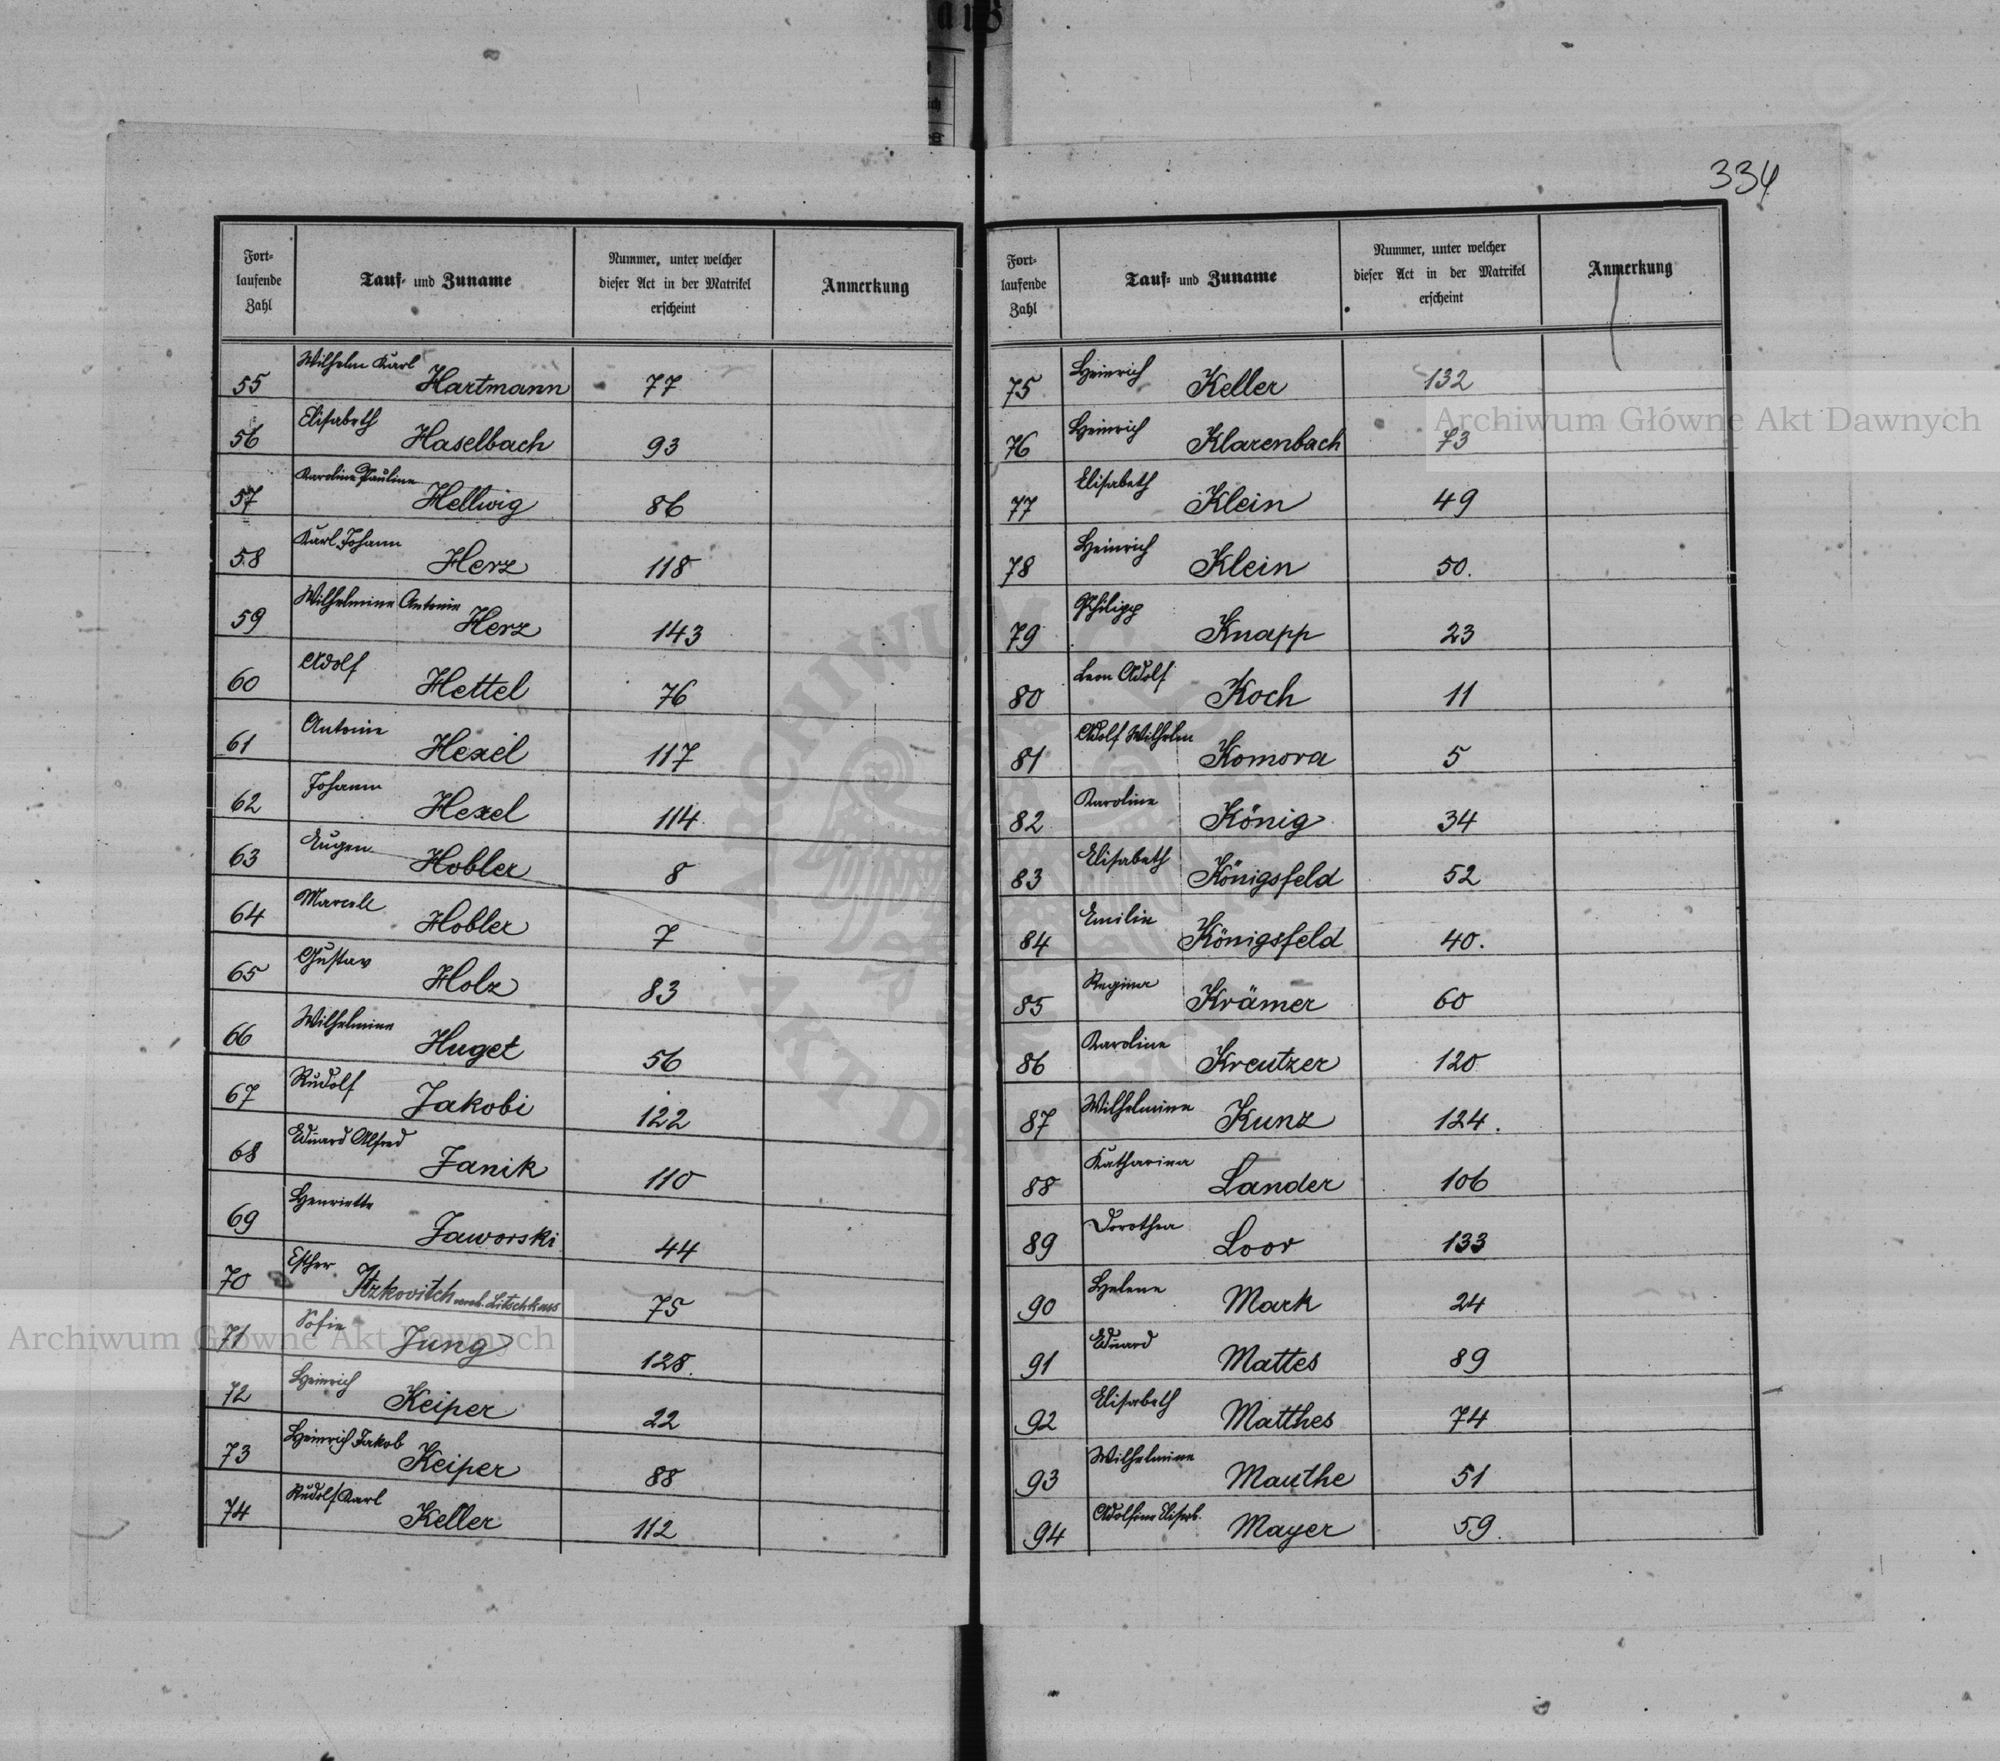 334
Fort-
laufende
Zahl
Tauf- und Zuname
Nummer, unter welcher
dieser Act in der Matrikel
erscheint
Anmerkung
55 Wilhelm Karl Hartmann 77
56 Elisabeth Haselbach 93
57 Karoline Pauline Hellwig 86
58 Karl Johann Herz 118
59 Wilhelmine Antonie Herz 143
60 Adolf Hettel 76
61 Antonie Hexel 117
62 Johann Hexel 114
63 Eugen Hobler 8
64 Marcell Hobler 7
65 Gustav Holz 83
66 Wilhelmine Huget 56
67 Rudolf Jakobi 122
68 Eduard Alfred Janik 110
69 Henriette Jaworski 44
70 Esther Itzkovitch vereh. Litschkuss 75
71 Sofie Jung 128.
72 Heinrich Keiper 22
73 Heinrich Jakob Keiper 88
74 Rudolf Karl Keller 112
Fort-
laufende
Zahl
Tauf- und Zuname
Nummer, unter welcher
dieser Act in der Matrikel
erscheint
Anmerkung
75 Heinrich Keller 132
76 Heinrich Klarenbach 73
77 Elisabeth Klein 49
78 Heinrich Klein 50.
79 Philipp Knapp 23
80 Leon Adolf Koch 11
81 Adolf Wilhelm Komora 5
82 Karoline König 34
83 Elisabeth Königsfeld 52
84 Emilie Königsfeld 40.
85 Regina Krämer 60
86 Karoline Kreutzer 120
87 Wilhelmine Kunz 124.
88 Katharina Lander 106
89 Dorothea Loor 133
90 Helene Mark 24
91 Eduard Mattes 89
92 Elisabeth Matthes 74
93 Wilhelmine Mauthe 51
94 Adolfine Elisab. Mayer 59.
Archiwum Główne Akt Dawnych
Archiwum Główne Akt Dawnych